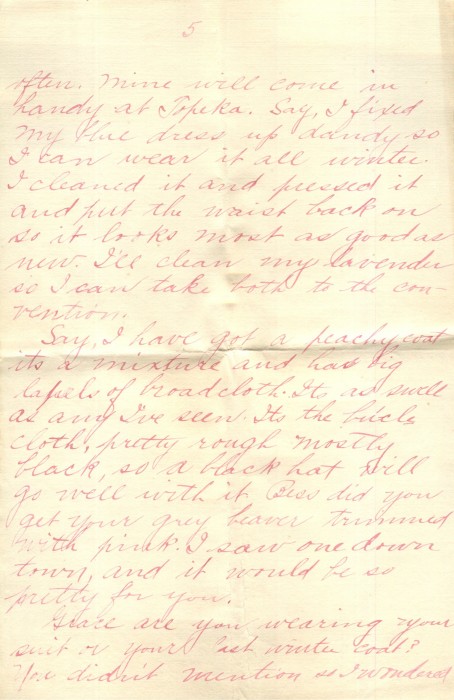 5
often. Mine will come in
handy at Topeka. Say, I fixed
my blue dress up dandy so
I can wear it all winter.
I cleaned it and pressed it
and put the waist back on
so it looks most as good as
new. I'll clean my lavender
so I can take both to the con-
vention.
Say, I have got a peachy coat
its a mixture and has big
lapels of broadcloth. Its as swell
as any I've seen. Its the
cloth, pretty rough mostly
black, so a black hat will
go well with it. Bess did you
get your grey beaver trimmed
with pink. I saw one down
town, and it would be so
pretty for you.
Grace are you wearing your
suit or your last winter coat?
You didn't mention so I wondered